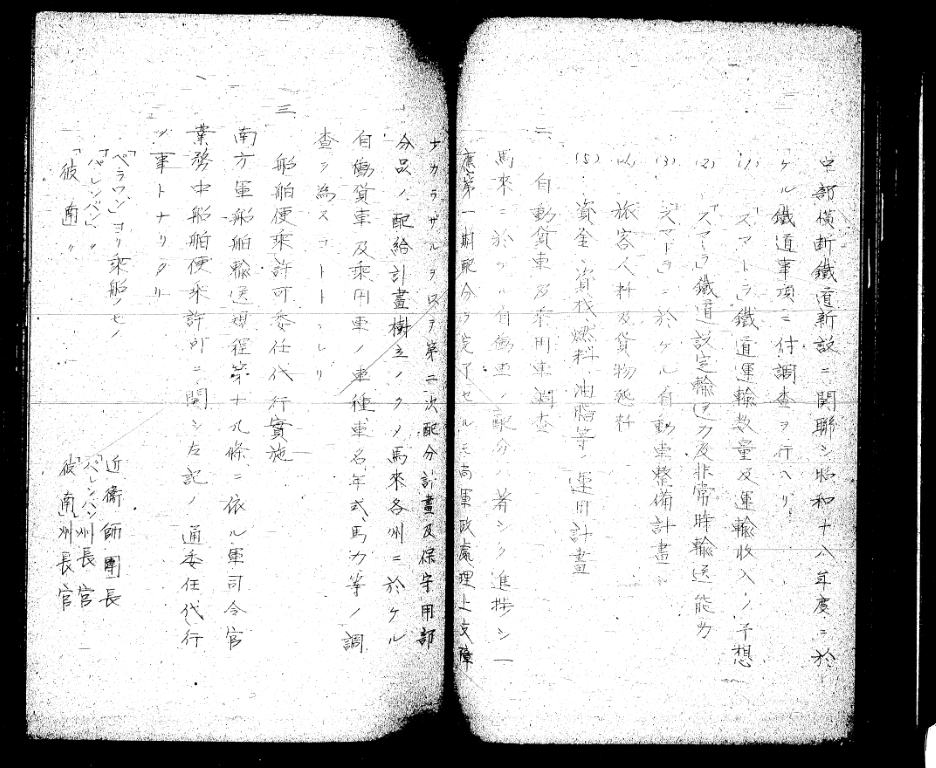 中部橫斷鐵道新設ニ関聯シ昭和十八年度ニ於
ケル鐵道事項ニ付調査ヲ行ヘリ
(1)「スマトラ」鐵道運輸数量及運輸收入ノ予想
(2)「スマトラ」鐵道設定輸送力及非常時輸送能力
(3)「スマトラ」ニ於ケル自動車整備計畫
(4) 旅客人料及貨物賃料
(5) 資金、資材、燃料、油脂等ノ運用計畫
二、自動貨車及乘用車調査
馬來ニ於ケル自働車ノ配分ハ着シク進捗シ一
應第一期配分ヲ完了セルモ尚軍政處理上支障
ナカラザルヲ以テ第二次配分計畫及保守用部
分品ノ配給計畫樹立ノタメ馬來各州ニ於ケル
自働貨車及乘用車ノ車種、車名、年式、馬力等ノ調
査ヲ為スコトトシタリ
三、船舶便乘許可委任代行實施
南方軍船舶輸送規程第十九條ニ依ル軍司令官
業務中船舶便乘許可ニ関シ左記ノ通委任代行
ノ事トナリタリ
「ベラワン」ヨリ乘船ノモノ　近衞師團長
「パレンバン」〃　「パレンバン」州長官
「彼南」〃　彼南州長官